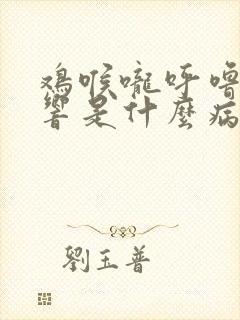 鸡喉嚨呼噜
響是什麼病
劉玉普